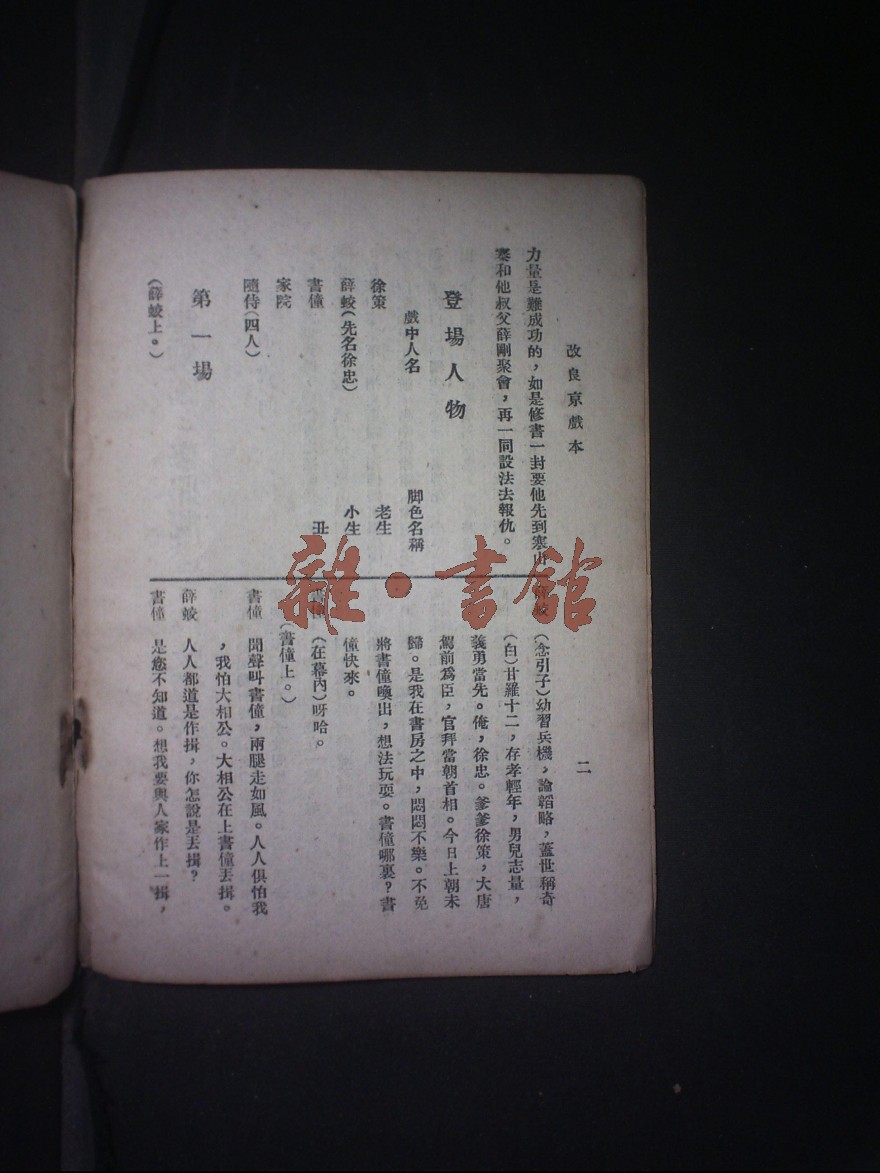 改良京戲本
二
力量是難成功的，如是修書一封要他先到寒山
寨和他叔父薛剛聚會，再一同設法去報仇。
登場人物
戲中人名 脚色名稱
徐策 老生
薛蛟(先名徐忠) 小生
書僮 丑
家院
隨侍(四人)
第一場
(薛蛟上。)
薛蛟 (念引子)幼習兵機，論韜略，蓋世稱奇
(白)甘羅十二，存孝輕年，男兒志量，
義勇當先。俺，徐忠。爹爹徐策，大唐
駕前爲臣，官拜當朝首相。今日上朝未
歸。是我在書房之中，悶悶不樂。不免
將書僮喚出，想法玩耍。書僮哪裏？書
僮快來。
書僮 (在幕內)呀哈。
(書僮上。)
書僮 聞聲叫書僮，兩腿走如風。人人俱怕我
，我怕大相公。大相公在上書僮丟揖。
薛蛟 人人都道是作揖，你怎說是丟揖？
書僮 是您不知道。想我要與人家作上一揖，
雜·書館